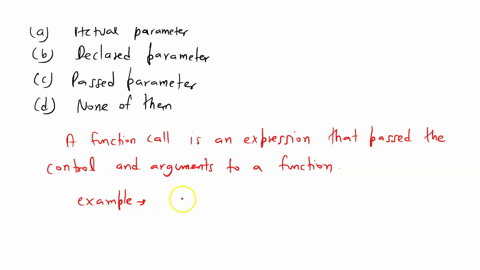 (a) Actual parameter
(b) Declared parameter
(c) Passed parameter
(d) None of them
A function call is an expression that passed the
control and arguments to a function.
example →